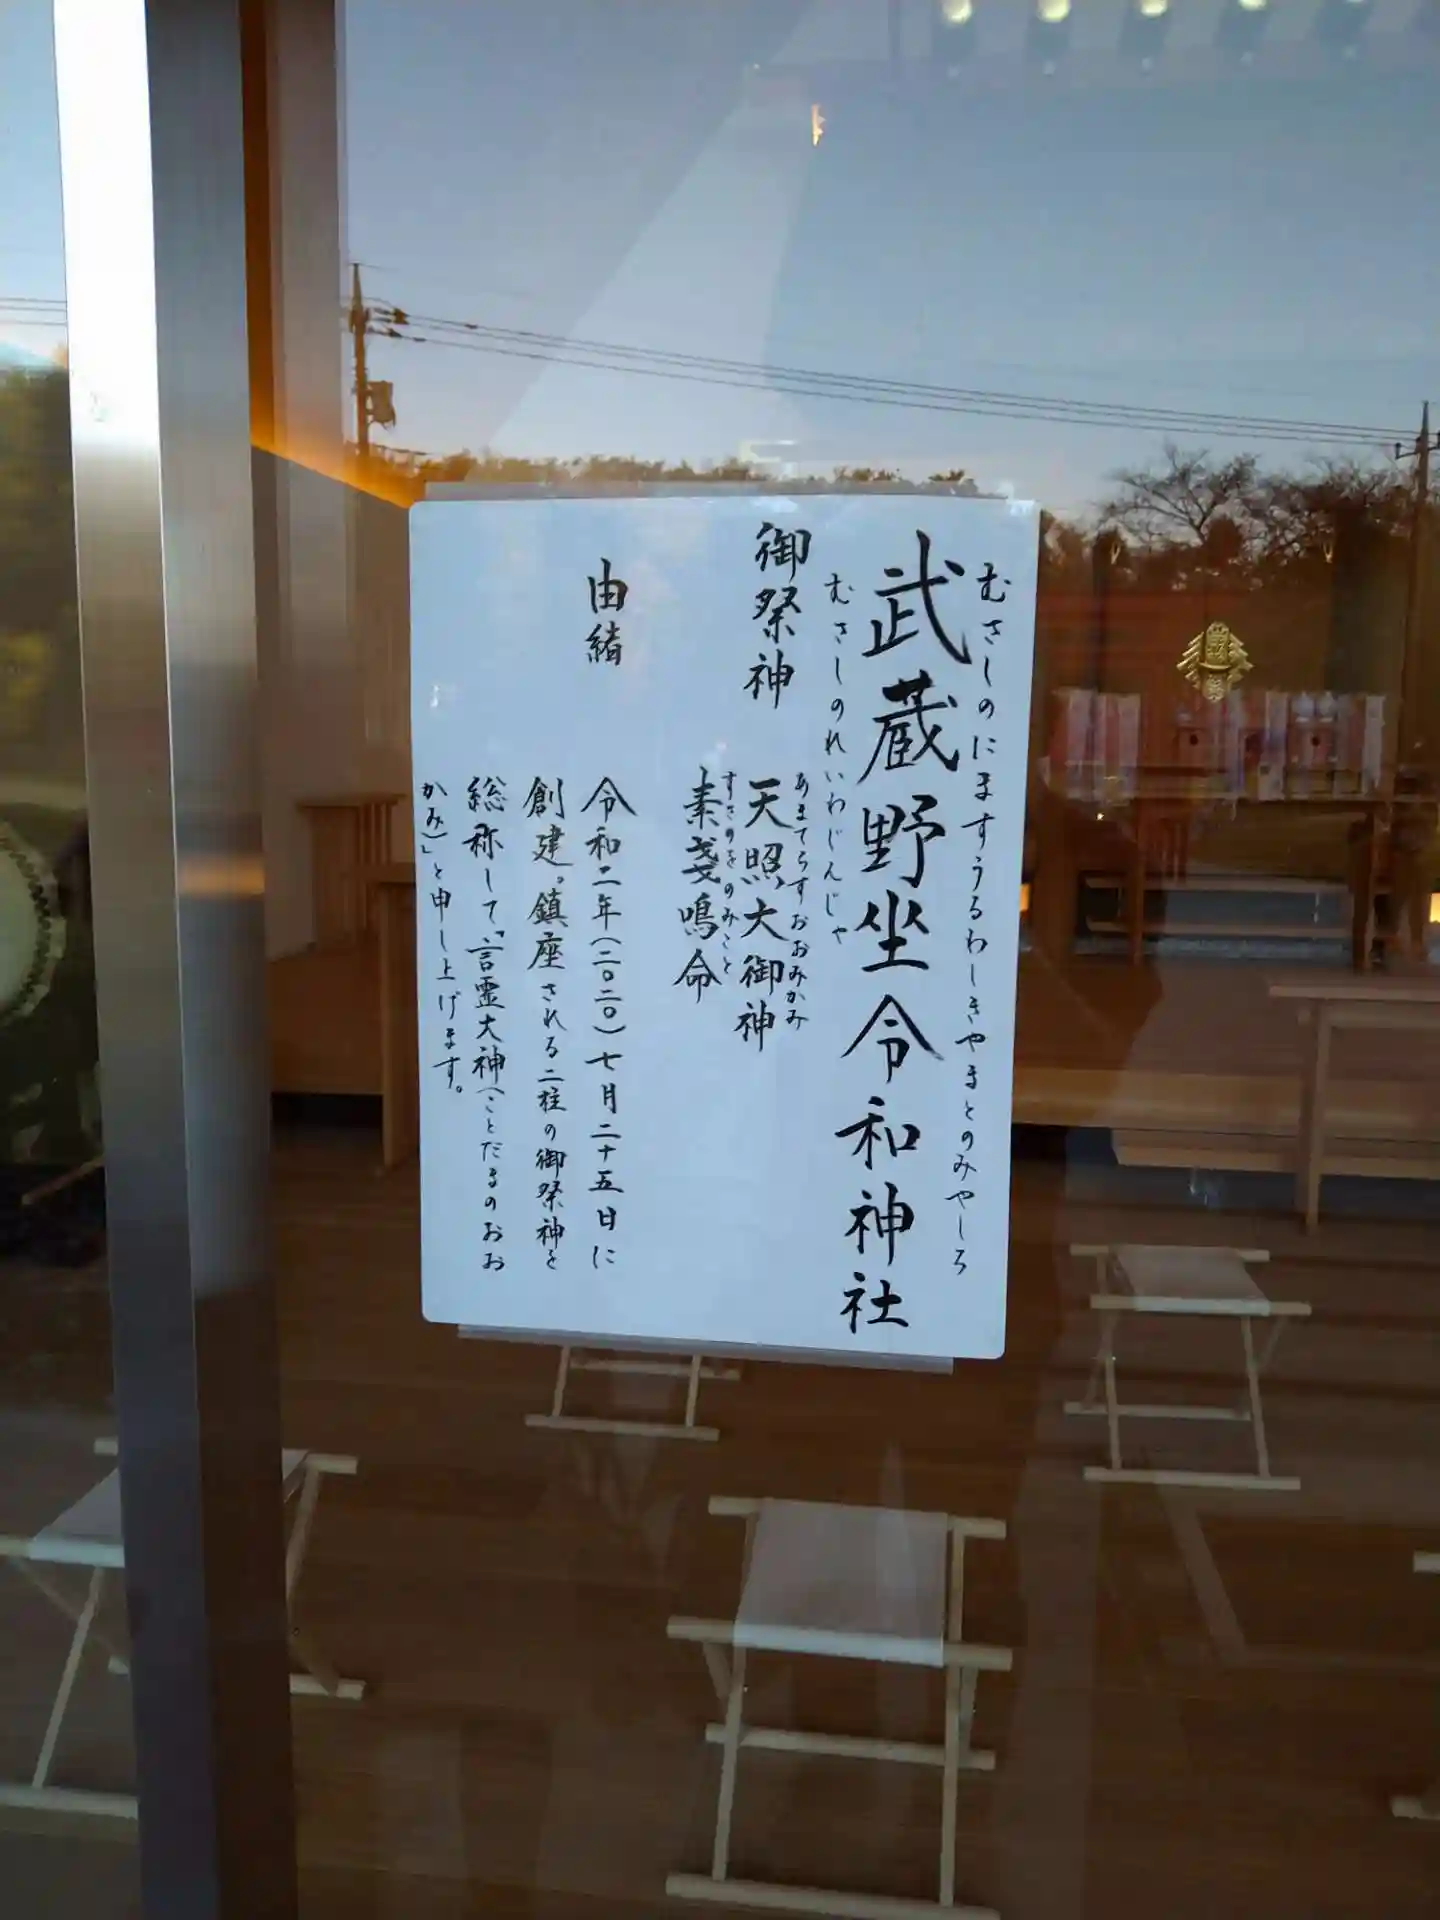 むさしのにますうるわしきやまとのみやしろ
武蔵野坐令和神社
むさしのれいわじんじゃ
御祭神
あまてらすおおみかみ
天照大御神
すさのをのみこと
素戔嗚命
由緒
令和二年(二〇二〇)七月二十五日に
創建。鎮座される二柱の御祭神を
総称して「言霊大神(ことだまのおお
かみ)」と申し上げます。